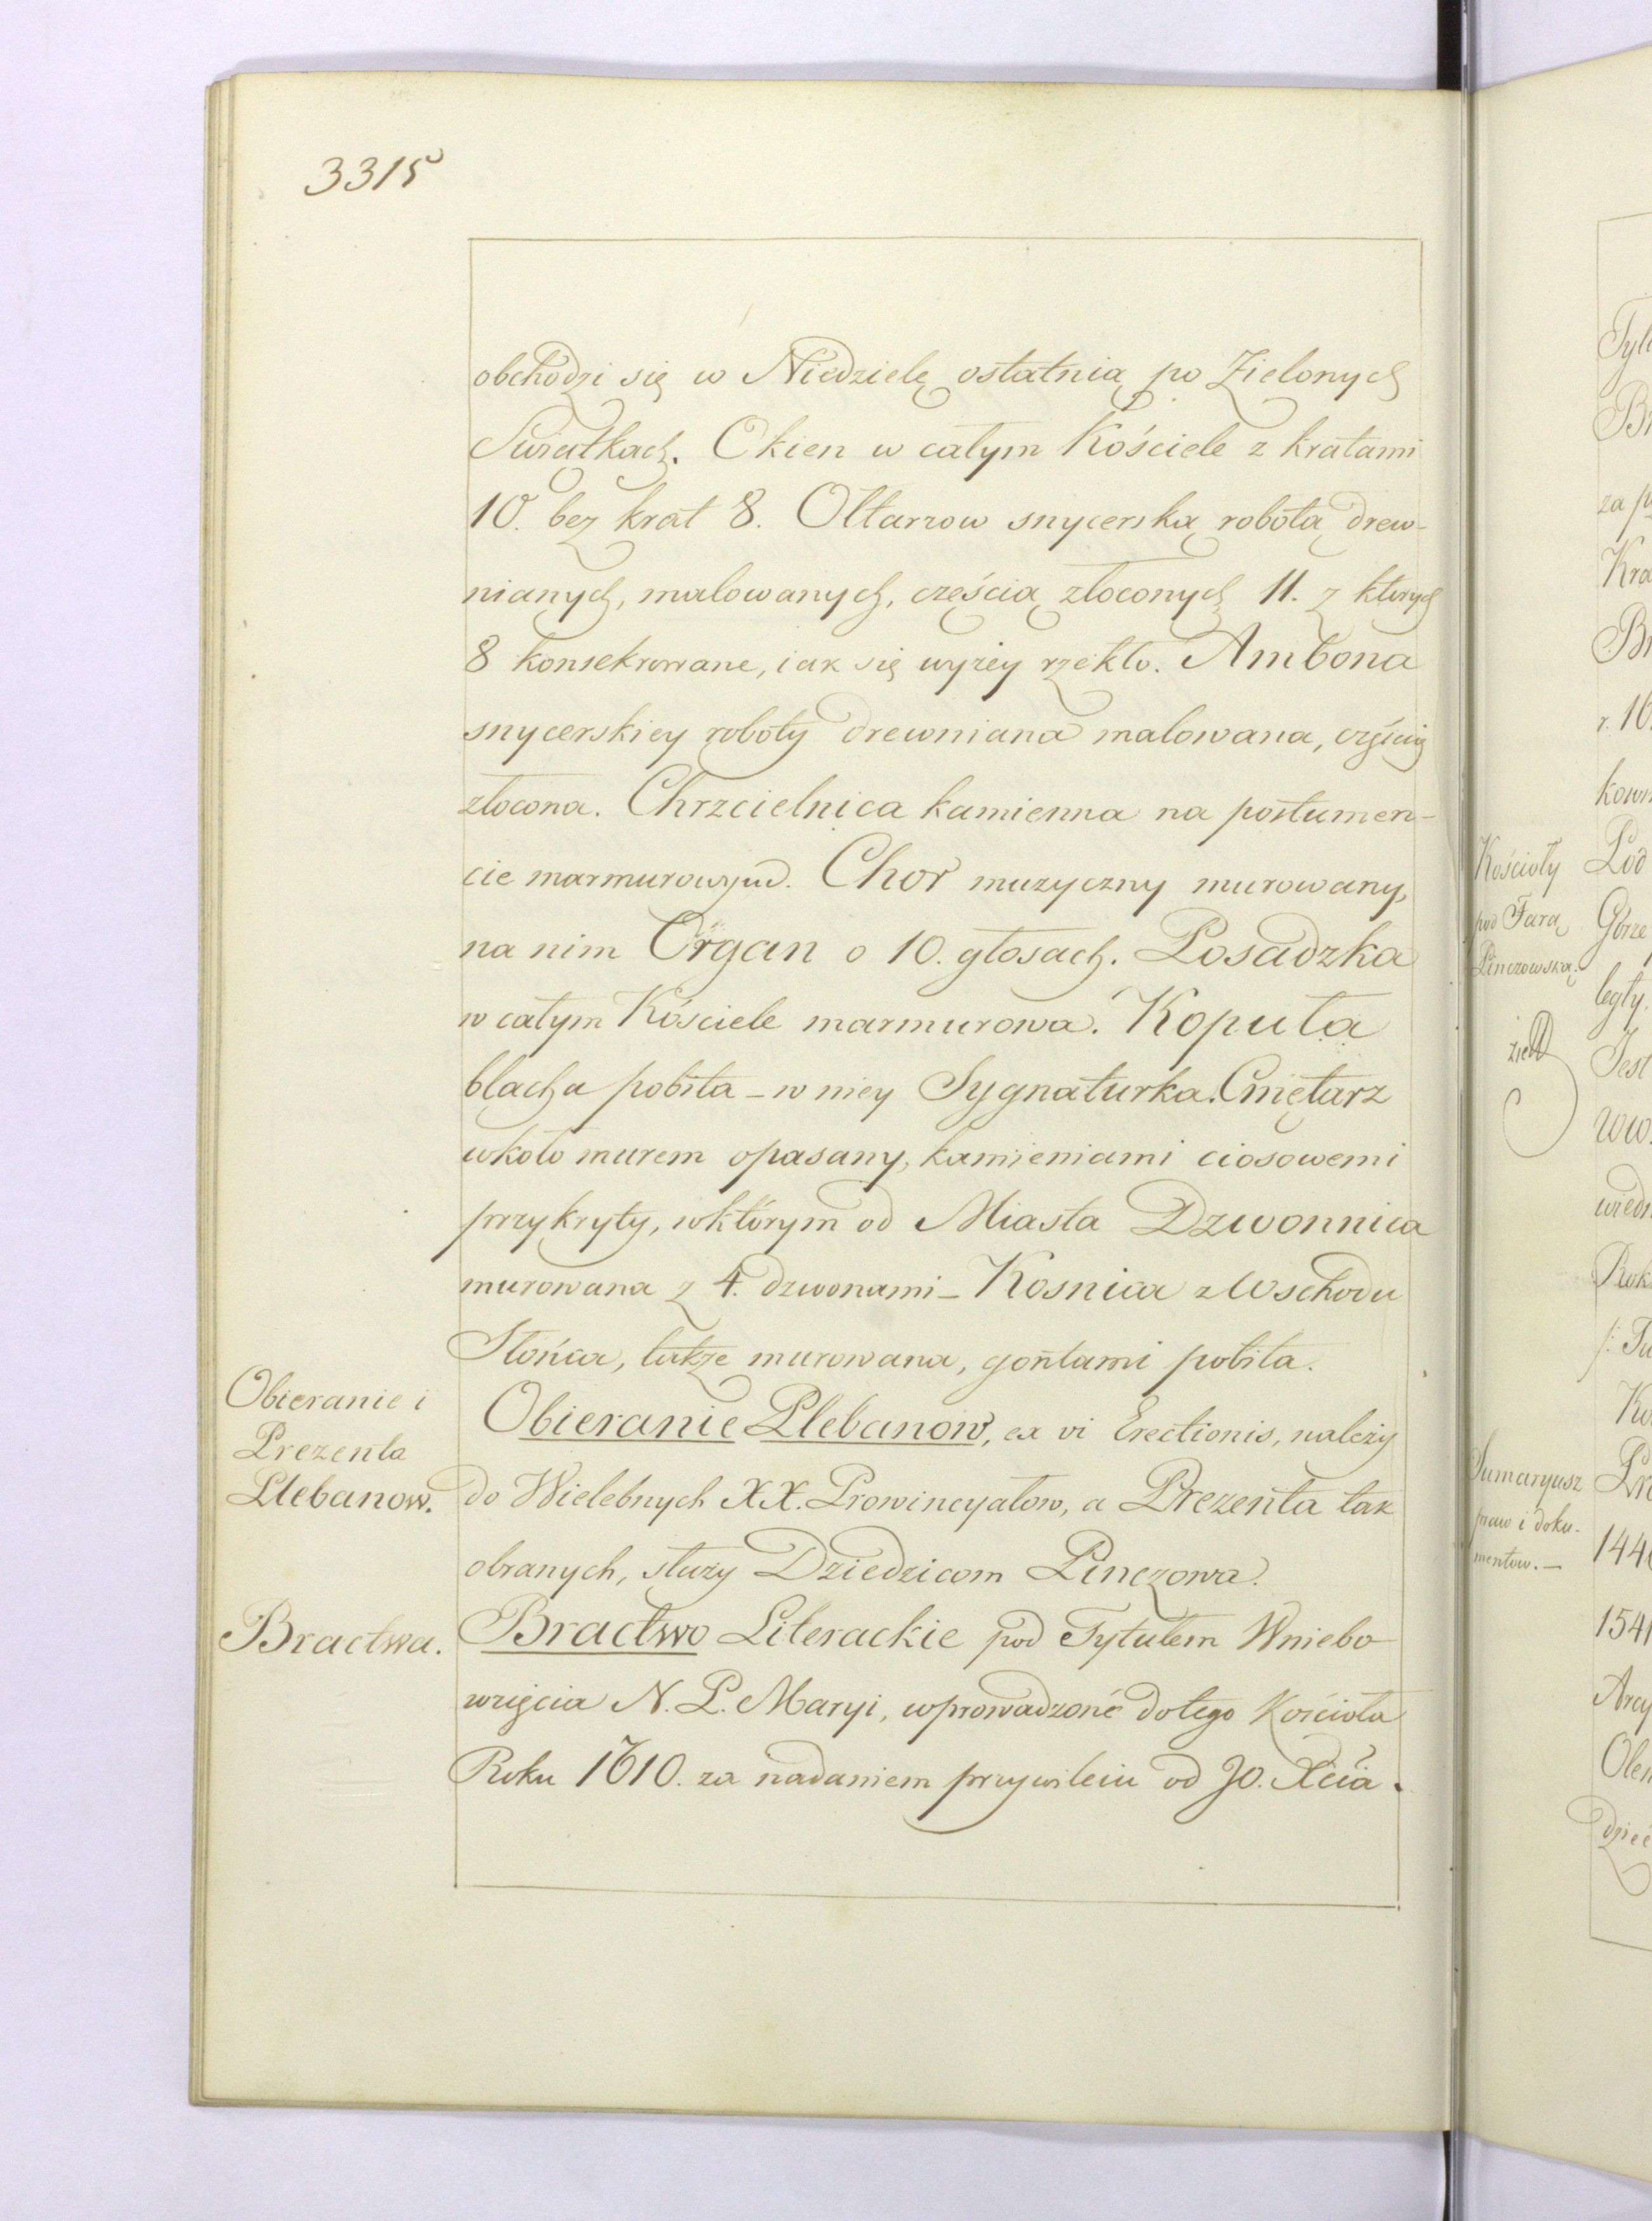 3315
obchodzi się w Niedzielę ostatnią po Zielonych
Swiątkach. Okien w całym Kościele z kratami
10. bez krat 8. Ołtarzow snycerską robotą drew-
nianych, malowanych, częścią złoconych 11. z ktorych
8 konsekrowane, iak się wyżey rzekło. Ambona
snycerskiey roboty drewniana malowana, częścią
złocona. Chrzcielnica kamienna na postumen-
cie marmurowym. Chor muzyczny murowany,
na nim Organ o 10. głosach. Posadzka
w całym Kościele marmurowa. Kopuła
blachą pobita – w niey Sygnaturka. Cmętarz
wkoło murem opasany, kamieniami ciosowemi
przykryty, w którym od Miasta Dzwonnica
murowana z 4. dzwonami – Kosnica z Wschodu
Słońca, także murowana, gontami pobita.
Obieranie i
Prezenta
Plebanow.
Obieranie Plebanow, ex vi Erectionis, należy
do Wielebnych XX. Prowincyałow, a Prezenta tak
obranych, służy Dziedzicom Pinczowa.
Bractwa.
Bractwo Literackie pod Tytułem Wniebo
wzięcia N. P. Maryi, wprowadzoné do tego Kościoła
Roku 1610. za nadaniem przywileiu od JO. Xcia.
Kościoły
pod Farą
Pinczowską.
Sumaryusz
praw i doku-
mentow. –